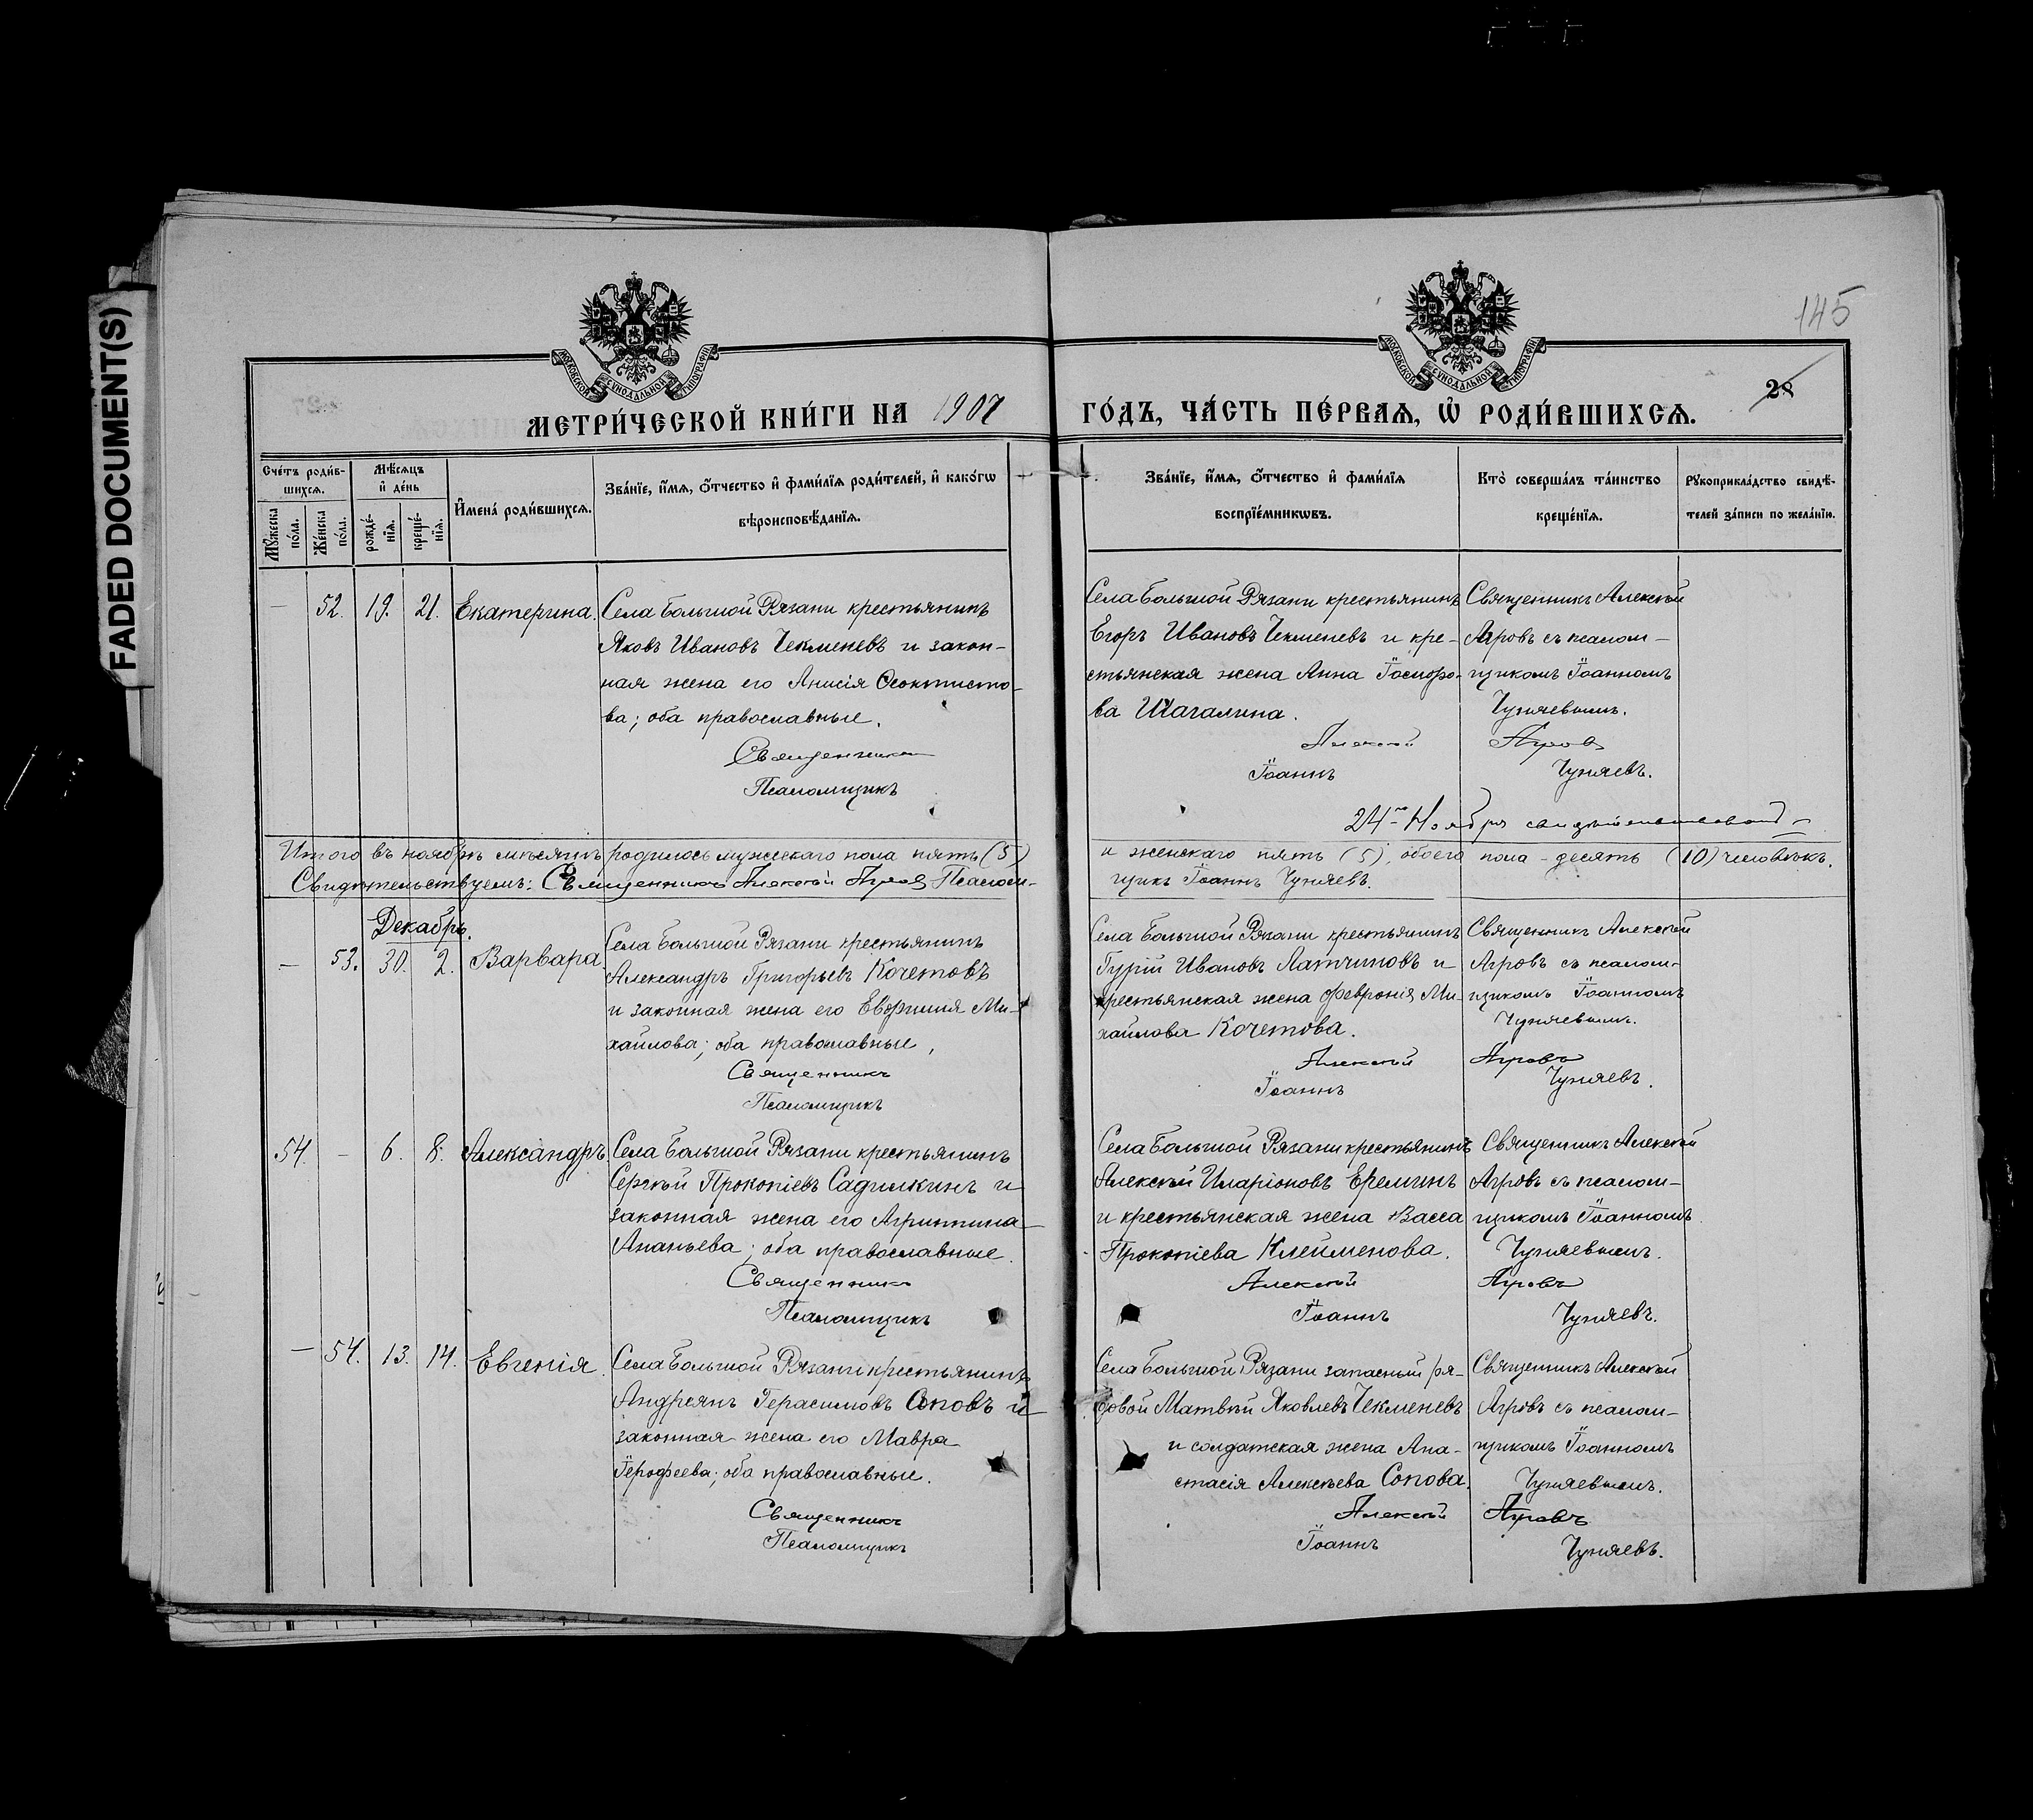 FADED DOCUMENT(S)
145
МОСКОВСКОЙ СУНОДАЛЬНОЙ ТИПОГРАФІИ
МОСКОВСКОЙ СУНОДАЛЬНОЙ ТИПОГРАФІИ
28
МЕТРИ́ЧЕСКОЙ КНИ́ГИ НА 1907
ГО́ДЪ, ЧА́СТЬ ПЕ́РВАѦ, Ѡ҆ РОДИ́ВШИХСѦ.
Сче́тъ роди́в-
шихсѧ.
Мꙋ́жеска по́ла.
Же́нска по́ла.
Мѣ́сѧцъ и҆ де́нь
рожде́-нїѧ.
креще́-нїѧ.
И҆мена̀ роди́вшихсѧ.
Зва́нїе, и҆́мѧ, ѻ҆́тчество и҆ фами́лїѧ роди́телей, и҆ како́гѡ
вѣроисповѣ́данїѧ.
Зва́нїе, и҆́мѧ, ѻ҆́тчество и҆ фами́лїѧ
воспрїе́мникѡвъ.
Кто̀ соверша́лъ та́инство
креще́нїѧ.
Рꙋкоприкла́дство свидѣ́-
телей за́писи по жела́нїю.
— 52. 19. 21. Екатерина. Села Большой Рязани крестьянинъ
Яковъ Ивановъ Чекменевъ и закон-
ная жена его Анисія Ѳеоктисто-
ва; оба православные.
Священникъ
Псаломщикъ
Села Большой Рязани крестьянинъ
Егоръ Ивановъ Чекменевъ и кре-
стьянская жена Анна Іосифо-
ва Шагалина.
Алексѣй
Іоаннъ
Священникъ Алексѣй
Агровъ съ псалом-
щикомъ Іоанномъ
Чуняевымъ.
Агровъ
Чуняевъ.
24го Ноября свидѣтельствовалъ
Итого въ ноябрѣ мѣсяцѣ родилось мужескаго пола пять (5)
и женскаго пять (5), обоего пола - десять (10) человѣкъ.
Свидѣтельствуемъ: Священникъ Алексѣй Агровъ Псалом-
щикъ Іоаннъ Чуняевъ.
Декабрь.
— 53. 30. 2. Варвара Села Большой Рязани крестьянинъ
Александръ Григорьевъ Кочетовъ
и законная жена его Евфимия Ми-
хайлова; оба православные,
Священникъ
Псаломщикъ
Села Большой Рязани крестьянинъ
Гурій Ивановъ Латчиновъ и
крестьянская жена Февронія Ми-
хайлова Кочетова.
Алексѣй
Іоаннъ
Священникъ Алексѣй
Агровъ съ псалом-
щикомъ Іоанномъ
Чуняевымъ.
Агровъ
Чуняевъ.
54. — 6. 8. Александръ. Села Большой Рязани крестьянинъ
Сергѣй Прокопіевъ Садилкинъ и
законная жена его Агриппина
Ананьева; оба православные.
Священникъ
Псаломщикъ
Села Большой Рязани крестьянинъ
Алексѣй Иларіоновъ Ереминъ
и крестьянская жена Васса
Прокопіева Клейменова.
Алексѣй
Іоаннъ
Священникъ Алексѣй
Агровъ съ псалом-
щикомъ Іоанномъ
Чуняевымъ.
Агровъ
Чуняевъ.
— 54. 13. 14. Евгенія. Села Большой Рязани крестьянинъ
Андреянъ Герасимовъ Соповъ и
законная жена его Мавра
Іерофеева; оба православные.
Священникъ
Псаломщикъ
Села Большой Рязани запасный ря-
довой Матвѣй Яковлевъ Чекменевъ
и солдатская жена Ана-
стасія Алексѣева Сопова.
Алексѣй
Іоаннъ
Священникъ Алексѣй
Агровъ съ псалом-
щикомъ Іоанномъ
Чуняевымъ.
Агровъ
Чуняевъ.